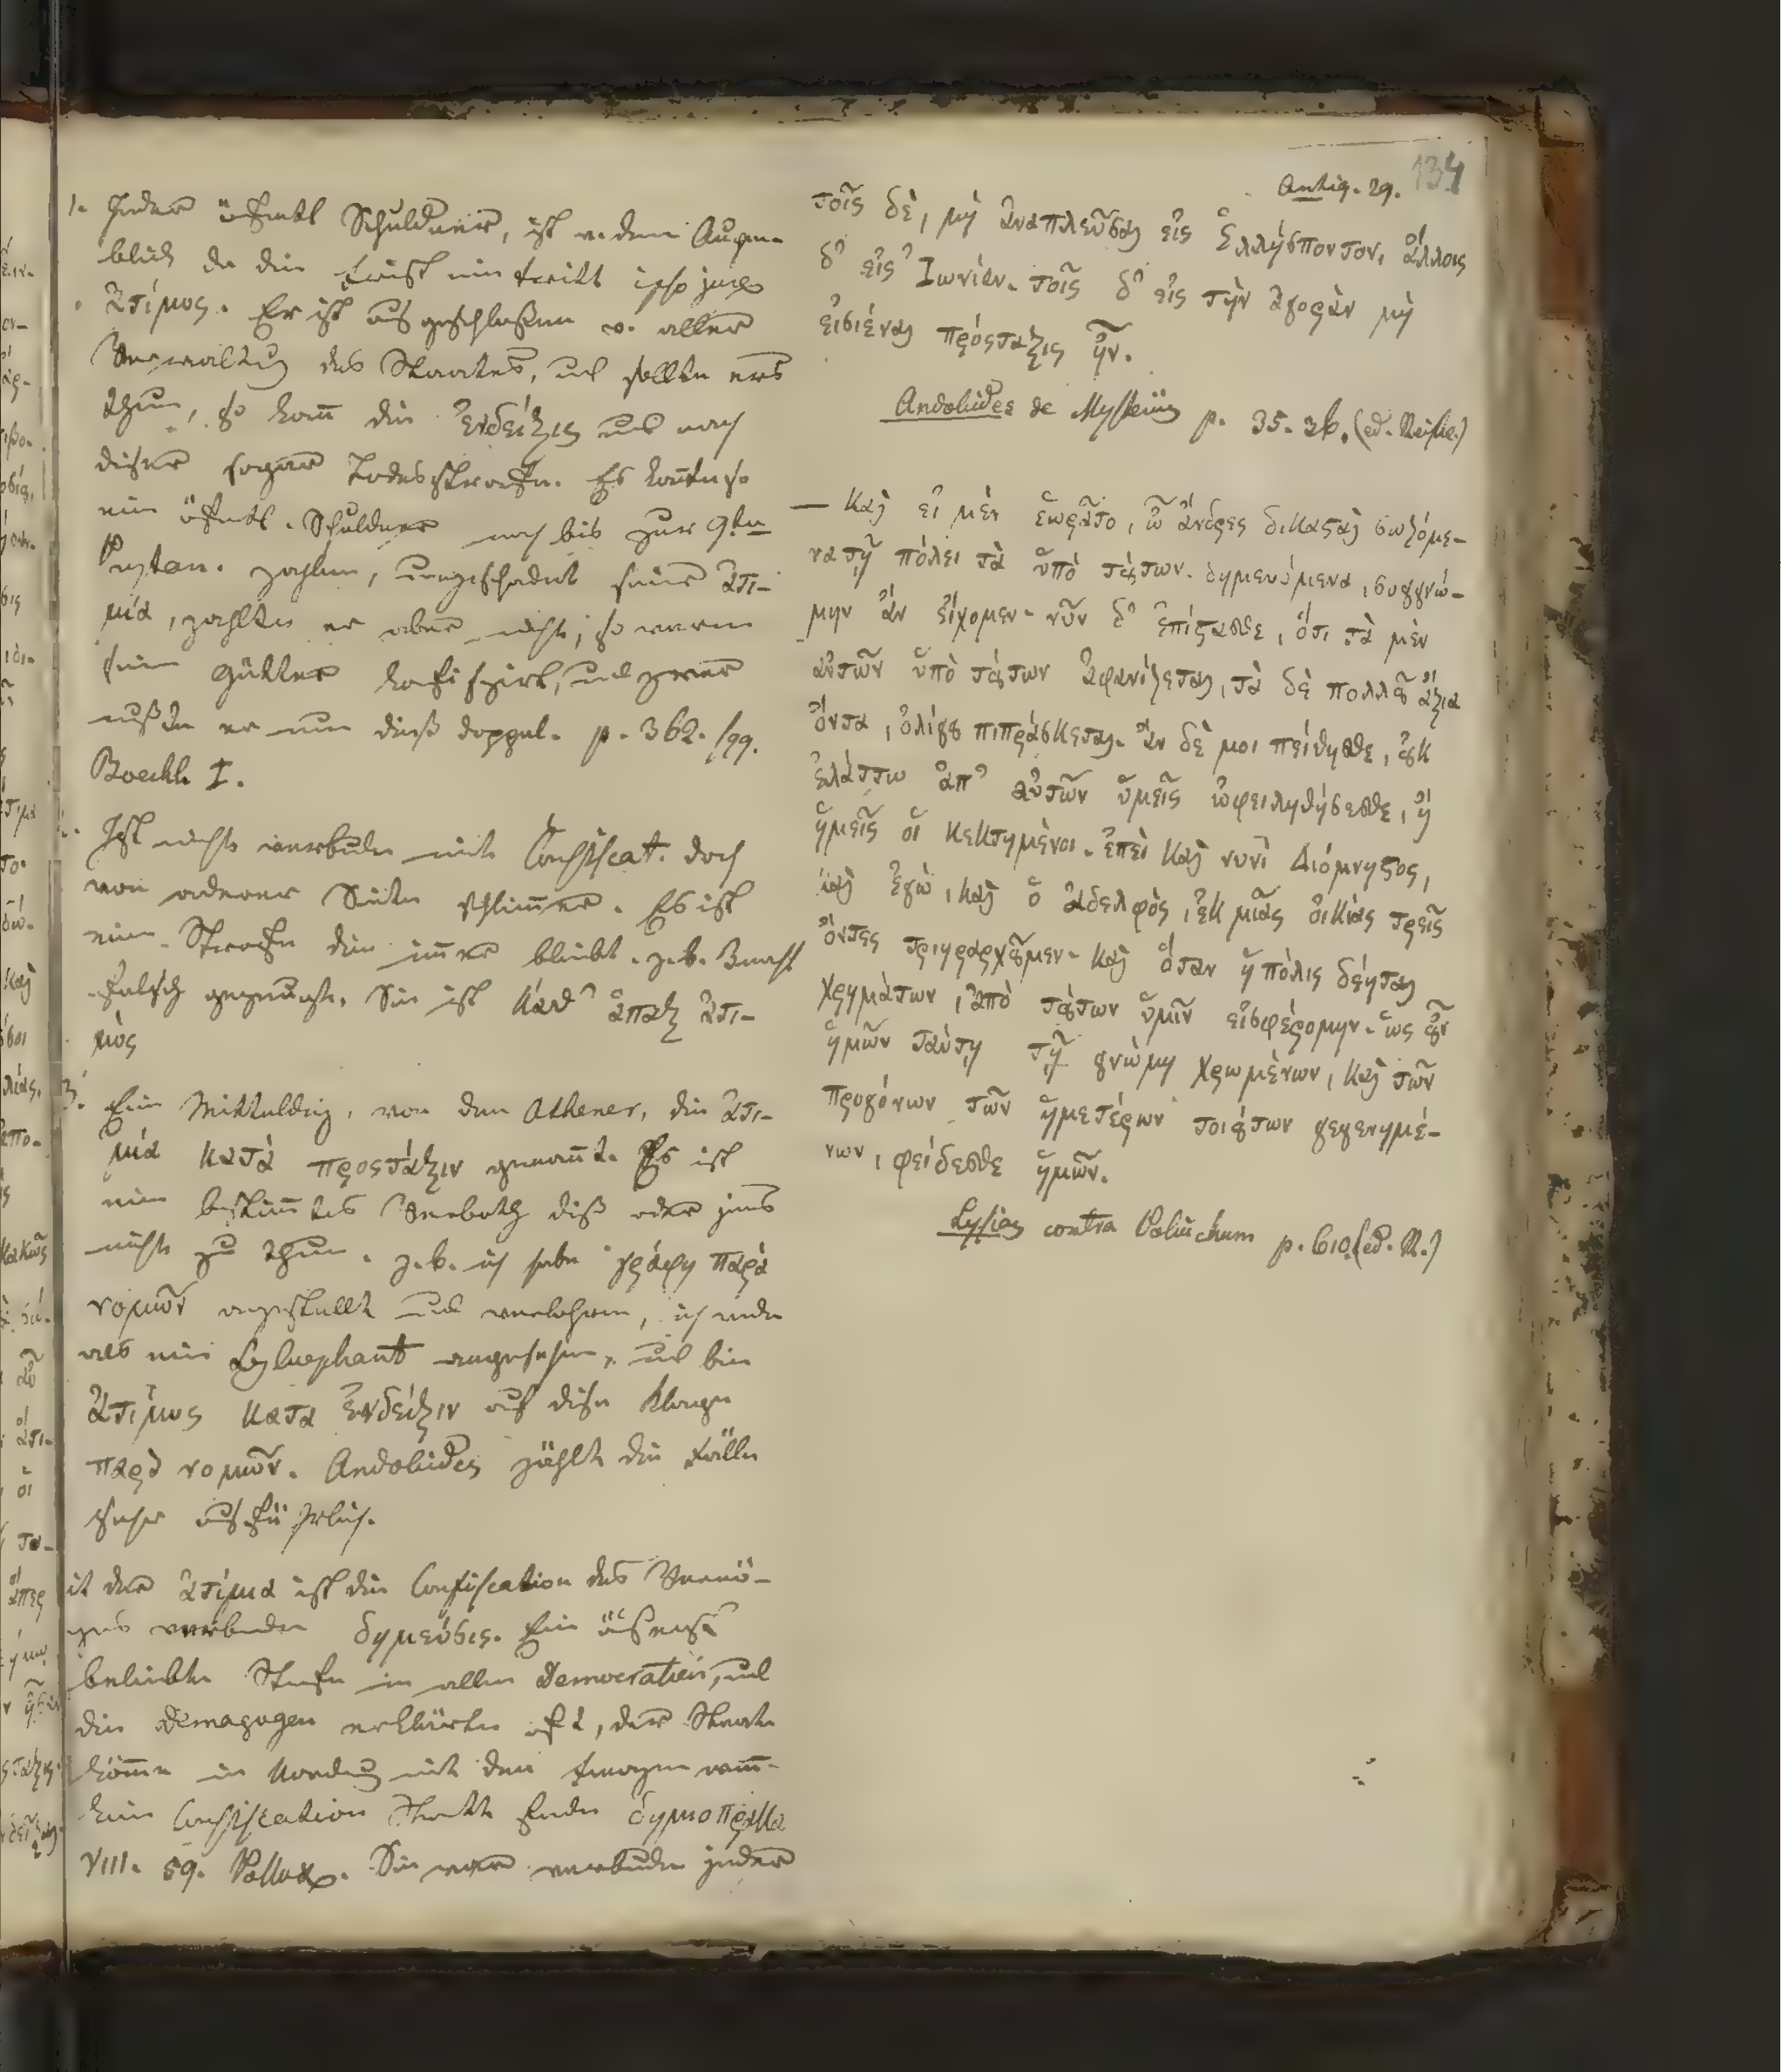 Antiq. 29. 134
1. Jeder öffentl Schuldner, ist v. dem Augen-
blick da die Frist eintreitt ipso jure
ἀτίμος. Er ist ausgeschlossen v. aller
Verwaltug des Staates, und sollte ers
thun, so kom̄t die ἐνδείξις und nach
diser sogar Todesstrafe. Es kon̄te so
ein öffentl. Schuldner noch bis zur 9ten
Prytan. zahlen, ungeschadet seine ἀτι-
μία, zahlte er aber nicht, so waren
seine Gütter kofiszirt, und zwar
mußte er nun dieß doppel. p. 362. sqq.
Boeckh I.
Ist nicht verbuden mit Confiscat. doch
von anderer Seite schlim̄er. Es ist
eine Strafe die im̄er bleibt. z. b.
falsch gezeugt. Sie ist καθ᾽ ἅπαξ ἀτι-
μὸς
3. Eine Mittelding, von den Athener, die ἀτι-
μία κατὰ προςτάξιν genan̄t. Es ist
ein bestim̄tes Verboth diß oder jenes
nicht zu thun. z. b. ich habe γράφη παρὰ
νομῶν angestellt und verlohren, ich werde
als ein Sykophant angesehen, und bin
ἀτίμος κατα ἐνδείξιν auf dise Klage
παρὰ νομῶν. Andokides zählt die Fälle
sehr ausführlich.
it der ἀτίμια ist die Confiscation des Vermö-
gens verbuden δημεύσις. Eine äußerst
beliebte Strafe in allen Democratien, und
die Demagogen erklärte oft, der Staat
köm̄e in Unordnug mit den
keine Confiscation Statt finde δημιοπρακα
VIII. 59. Pollux. Die war verbuden jeder
τοῖς δὲ, μὴ ἀναπλεῦσαι εἰς Ἑλλήσποντον, ἄλλοις
δ᾽ εἰς Ἰωνίαν. τοῖς δ᾽ εἰς τὴν ἀγορὰν μὴ
εἰσιέναι πρόςταξις ἦν.
Andokides de Mysteriis p. 35. 36. (ed. Reiske.)
— καὶ εἰ μὲν ἑωρᾶτο, ὦ ἄνδρες δικασταὶ σωζόμε-
να τῇ πόλει τὰ ὑπὸ τούτων. δημευόμενα, συγγνώ-
μην ἂν εἴχομεν. νῦν δ᾽ ἐπίστασθε, ὅτι τὰ μὲν
αὐτῶν ὑπὸ τούτων ἀφανίζεται, τὰ δὲ πολλοῦ ἄξια
ὄντα, ὀλίγου πιπράσκεται. ἂν δέ μοι πείθησθε, οὐκ
ἐλάττω ἀπ᾽ αὐτῶν ὑμεῖς ὠφεληθήσεσθε, ἢ
ἡμεῖς οἱ κεκτημένοι. ἐπεὶ καὶ νυνὶ Διόμνηστος,
καὶ ἐγὼ, καὶ ὁ ἀδελφὸς, ἐκ μιᾶς οἰκίας τρεῖς
ὄντες τριηραρχοῦμεν. καὶ ὅταν ἡ πόλις δέηται
χρημάτων, ἀπὸ τούτων ὑμῖν εἰσφέρομην. ὡς οὖν
ἡμῶν ταύτῃ τῇ γνώμῃ χρωμένων, καὶ τῶν
προγόνων τῶν ἡμετέρων τοιούτων γεγενημέ-
νων, φείδεσθε ἡμῶν.
Lysias contra Poliuchum p. 610. (ed. R.)